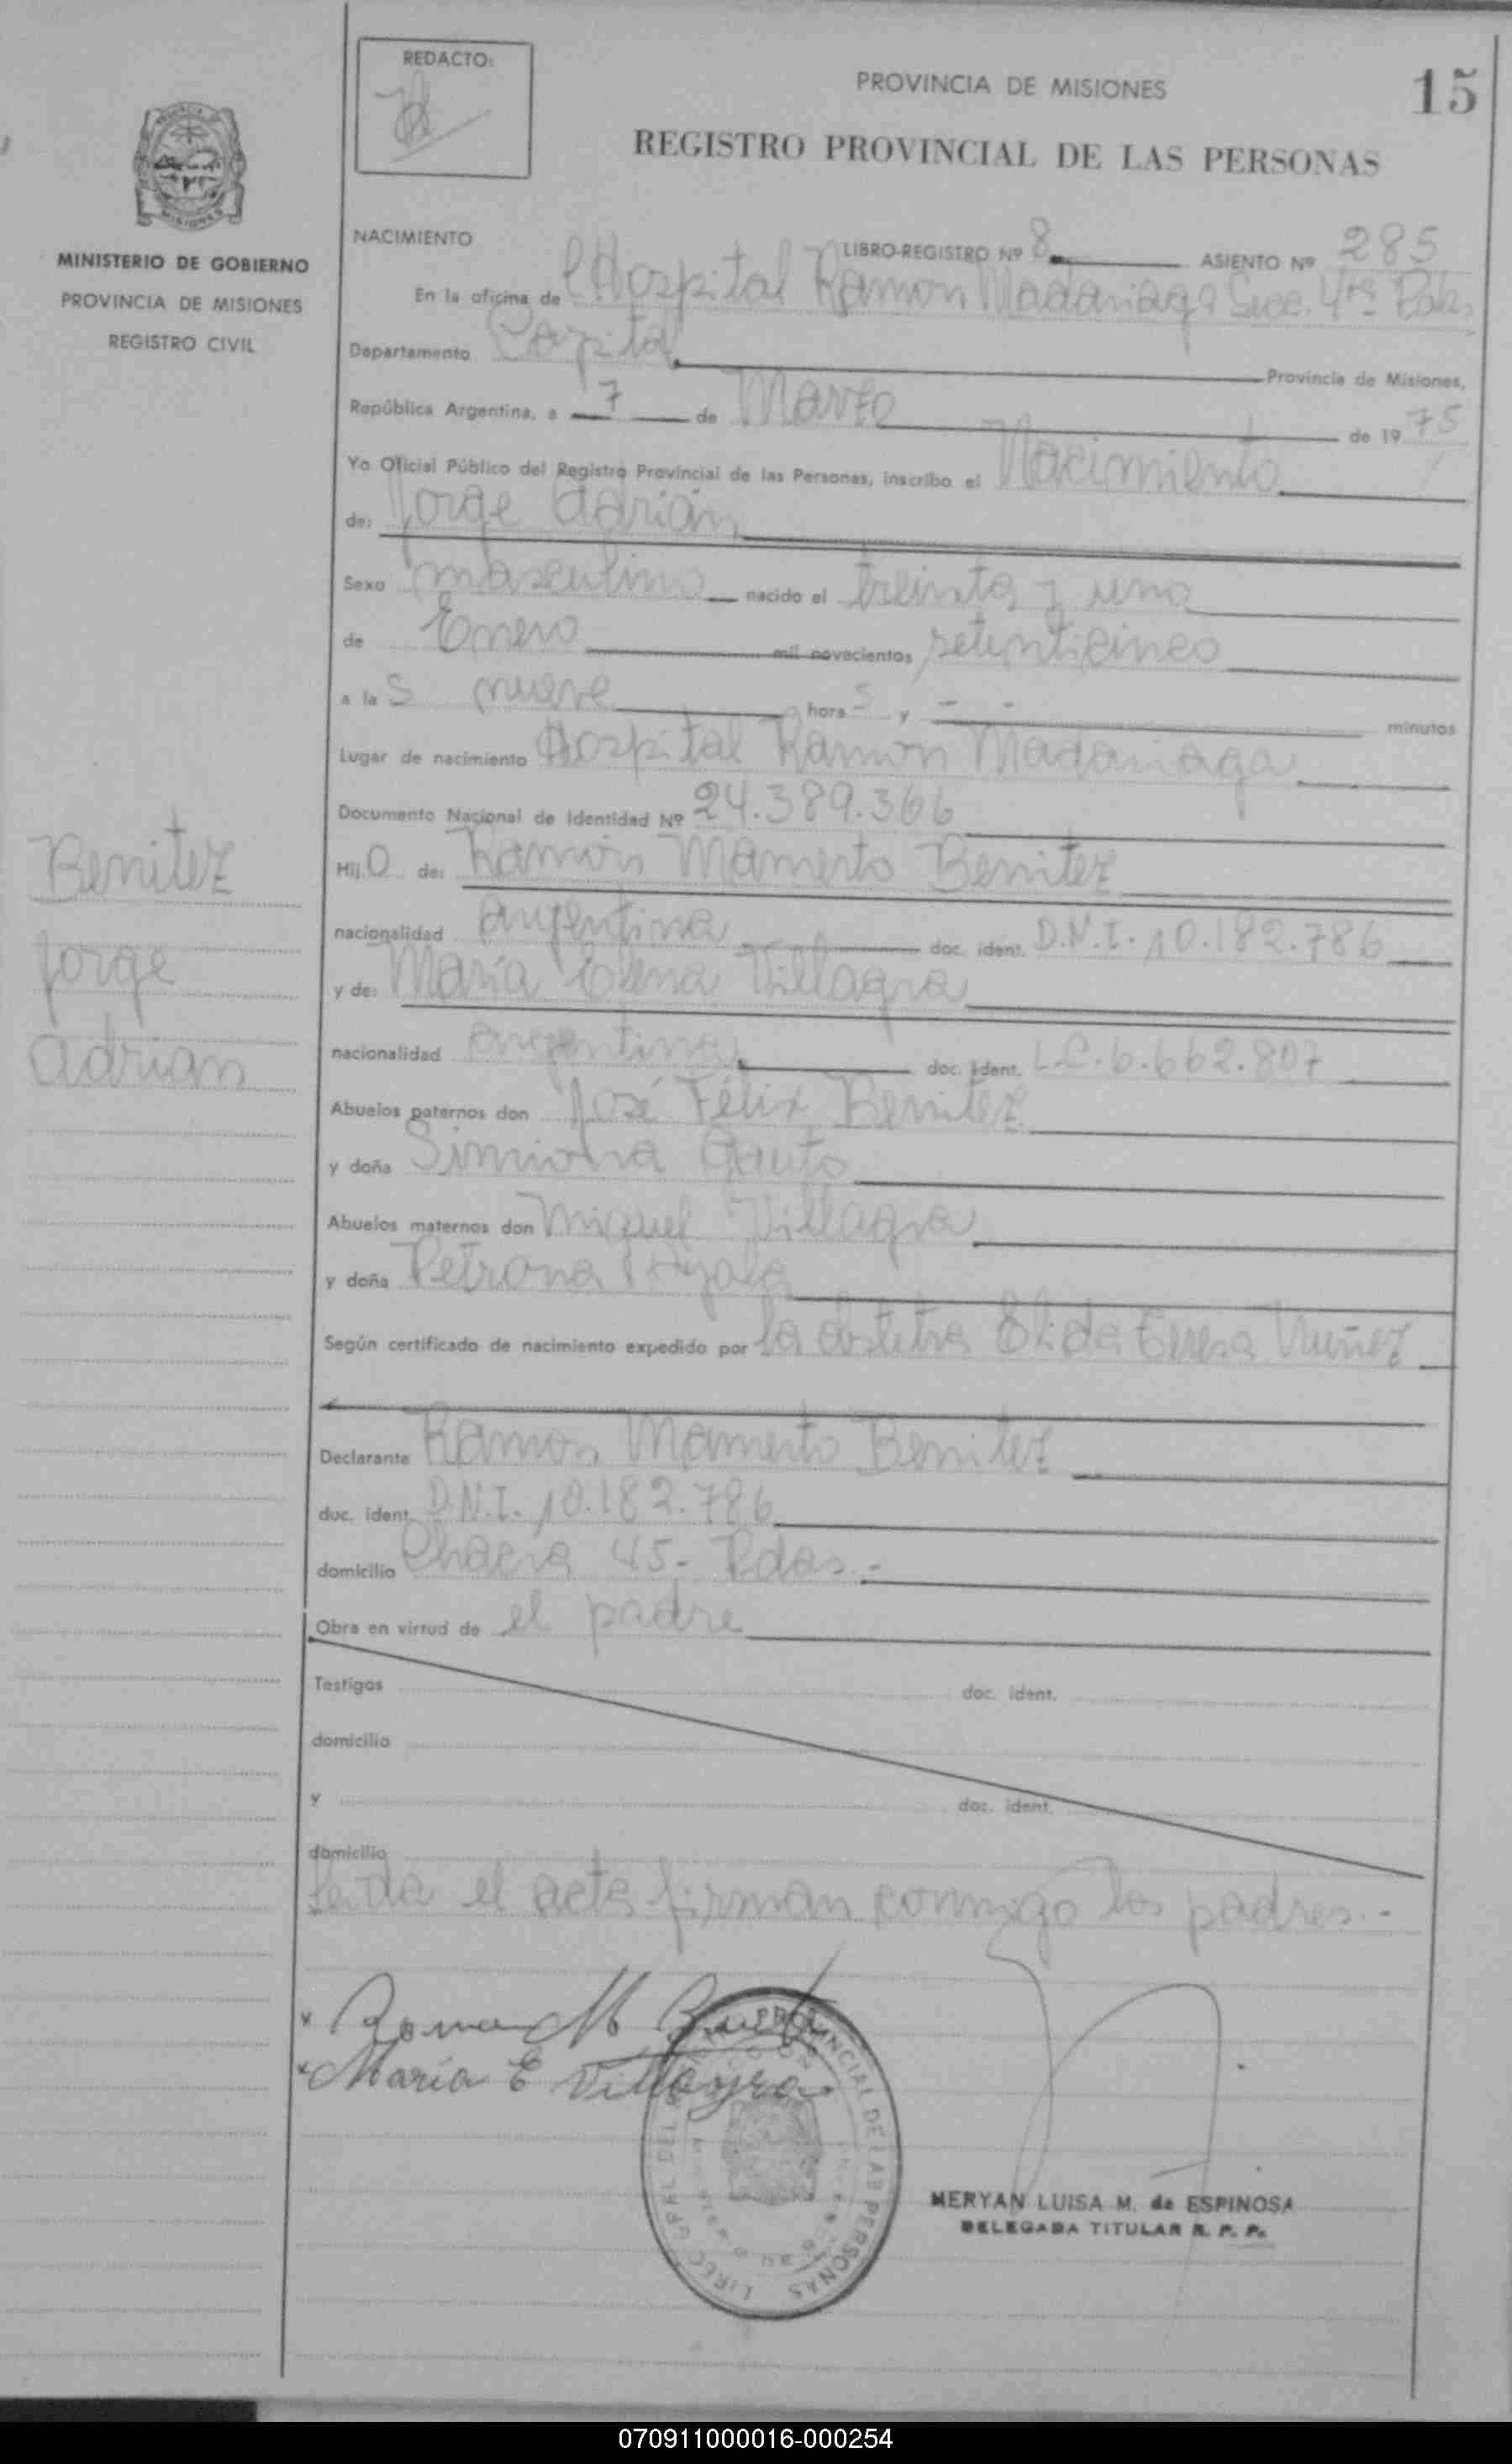 REDACTO:
PROVINCIA DE MISIONES
15
REGISTRO PROVINCIAL DE LAS PERSONAS
MISIONES
MINISTERIO DE GOBIERNO
PROVINCIA DE MISIONES
REGISTRO CIVIL
NACIMIENTO LIBRO-REGISTRO Nº 8 ASIENTO Nº 285
En la oficina de Hospital Ramon Madariaga Secc. 4ta Pdas
Departamento Capital Provincia de Misiones,
República Argentina, a 7 de Marzo de 1975
Yo Oficial Público del Registro Provincial de las Personas, inscribo el Nacimiento
de: Jorge Adrián
Sexo masculino nacido el treinta y uno
de Enero mil novecientos setenticinco
a las nueve horas y - - minutos
Lugar de nacimiento Hospital Ramon Madariaga
Documento Nacional de Identidad Nº 24.389.366
Hijo de: Ramón Mamerto Benitez
nacionalidad argentina doc. ident. D.N.I. 10.182.786
y de: María Elena Villagra
nacionalidad argentina doc. ident. L.C. 6.662.807
Abuelos paternos don José Félix Benitez
y doña Simiona Gauto
Abuelos maternos don Miguel Villagra
y doña Petrona Ayala
Según certificado de nacimiento expedido por la obstetra Elida Teresa Nuñez
Declarante Ramon Mamerto Benitez
doc. ident. D.N.I. 10.182.786
domicilio Chacra 45- Pdas.-
Obra en virtud de el padre
Testigos doc. ident.
domicilio
y doc. ident.
domicilio
Leida el acta firman conmigo los padres.-
Benitez
Jorge
Adrian
x Ramon M B
x Maria E Villagra
PROVINCIAL DE LAS PERSONAS
MERYAN LUISA M. de ESPINOSA
DELEGADA TITULAR R. P. P.
070911000016-000254